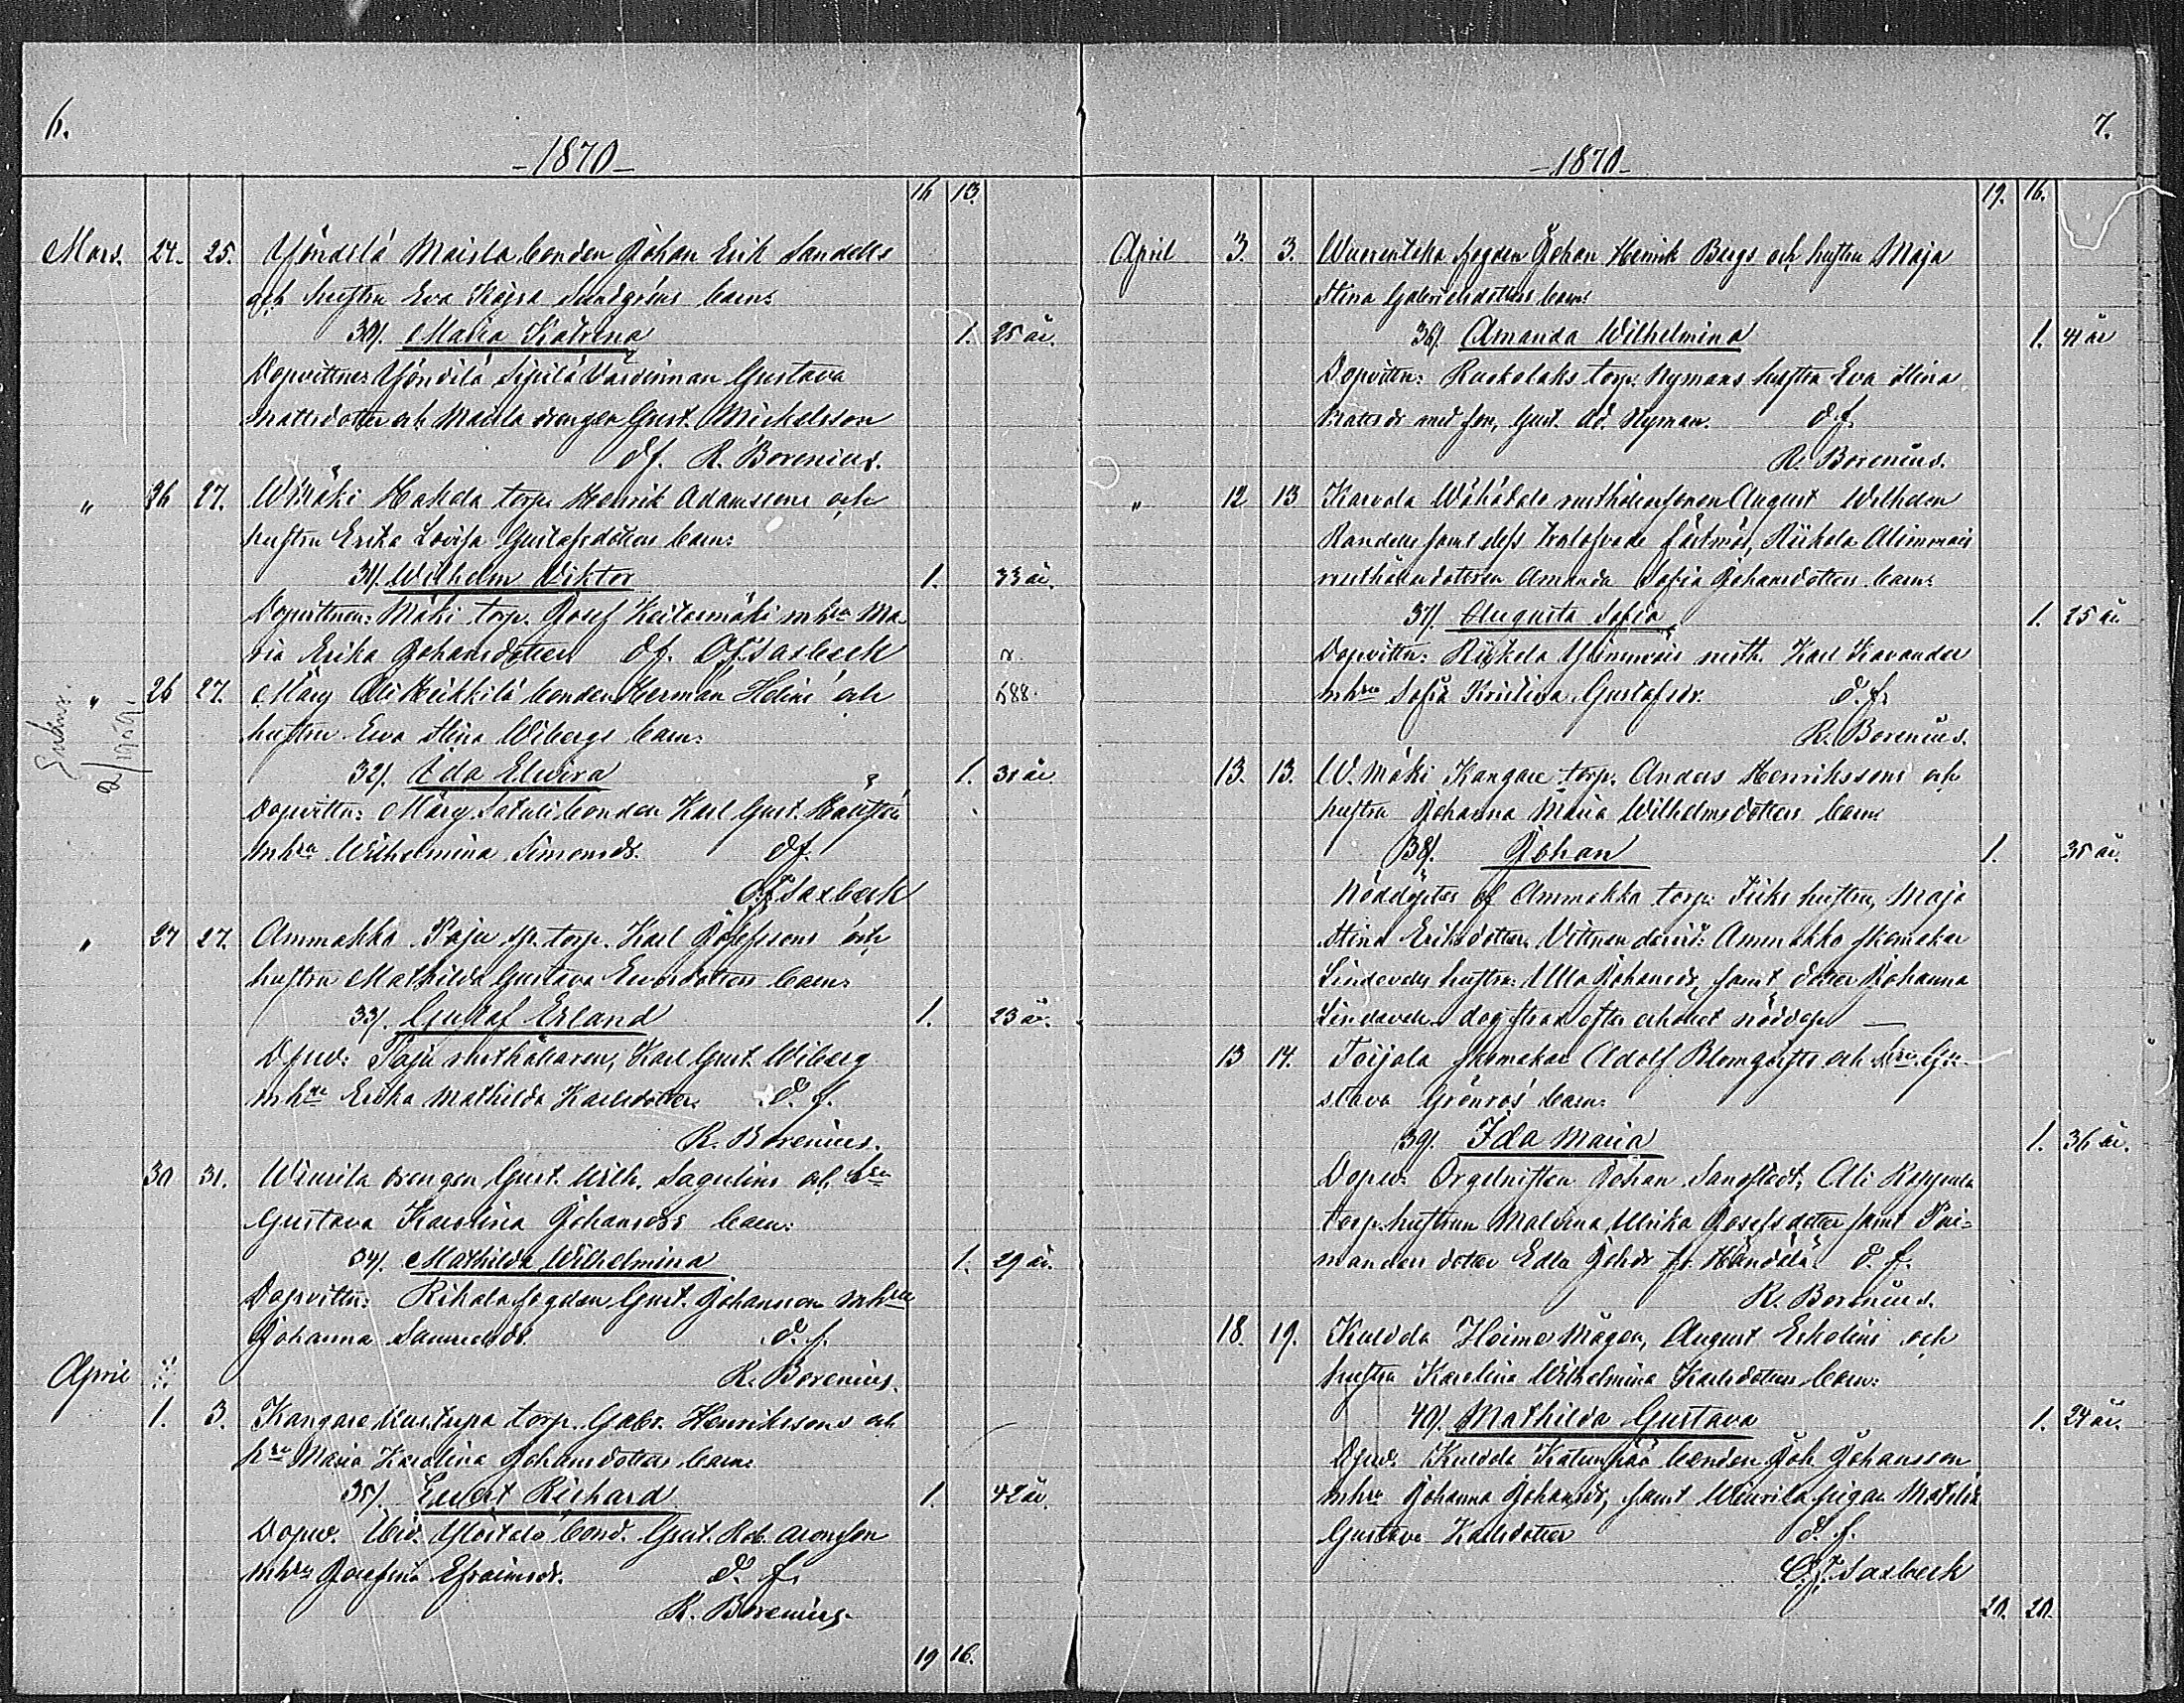 6.
-1870-
16 13.
Mars. 24. 25. Yöndilä Maisla bonden Johan Erik Sandells
och hustru Eva Kajsa Sundgréns barn:
30). Maria Katrina 1. 25 år.
Dopvittnen Yöndilä Sipilä Gustava
Mattsdotter och Maisla drengen Gust. Mickelsson
d.f. R. Borenius.
" 26 27. Hakda torp. Henrik Adamssons och
hustru Erika Lovisa Gustafsdotters barn:
31). Wilhelm Viktor 1. 33 år.
Dopvittnen: Mäki torp. Josef Keitasmäki mhru Ma-
ria Erika Johansdotter d.f. O.F. Saxbeck
Enkus. 2/1959.
" 26 27. Märy Ali Heikkilä bonden Herman Helins och
588.
hustru Eva Stina Wibergs barn:
32). Ida Elvira 1. 31 år
Dopvittn: Märy Satuli bonden Karl Gust.
mhru Wilhelmina Simonsdr. d.f.
O.F. Saxbeck
" 27 27. Ammakka Paju sp. torp. Karl Josefssons och
hustru Mathilda Gustava barn:
33). Gustaf Erland 1. 23 år.
Dopv: Paju rusthållaren, Karl Gust. Wiberg
mhru Erika Mathilda Karlsdotter. d. f.
R. Borenius.
30 31. Winrila drengen Gust. Wilh. Sagulins och hru
Gustava Karolina Johansdrs barn:
34). Mathilda Wilhelmina 1. 29 år.
Dopvittn: Rihala fogden Gust. Johansson mhru
Johanna Samuelsdr. d. f.
R. Borenius.
April
1. 3. Kangare torp. Gabr. Henrikssons och
hru Maria Karolina Johansdotters barn:
35). Evert Richard 1. 42 år.
Dopv. bond. Gust. Rob. Aronsson
mhru Josefina Efraimsdr. d. f.
R. Borenius.
19 16.
7.
-1870-
19. 16.
April 3. 3. Wuorentaka fogden Johan Henrik Bergs och hustru Maja
Stina Gabrielsdotters barn:
36). Amanda Wilhelmina 1. 41 år
Dopvittn: Ruskolaks torp. Nymans hustru Eva Stina
Mattsdr med son, Gust. Ad. Nyman. d.f.
R. Borenius.
" 12 13 Karvola Wähätalo rusthållarsonen August Wilhelm
Randells samt dess trolofvade fästmö, Riihola Alimmais
rusthållardottren Amanda Sofia Johansdotters barn:
37). Augusta Sofia 1. 25 år
Dopvittn: rusth. Karl Kavander
mhru Sofia Kristina Gustafsdr. d.f.
R. Borenius.
13. 13. W. Mäki Kangare torp. Anders Henrikssons och
hustru Johanna Maria Wilhelmsdotters barn
38). Johan 1. 35 år.
Nöddöptes af Ammakka torp. hustru, Maja
Stina Eriksdotter. Vittnen dervid: Ammakka skomakar
Lindevalls hustru: Ulla Johansdr, samt dotter Johanna
Lindevall. dog strax efter erhållet nöddop —
13 14. Toijola skomakar Adolf Blomqvists och hru Gu-
stava Grönroos barn:
39). Ida Maria 1. 36 år.
Dopv: Orgelnisten Johan Sandstedt, Ali Reppula
torp. hustrun Malvina Ulrika Josefsdotter samt
dotter Edla Johdr fr. d. f.
R. Borenius.
18. 19. Kuldda Heimo mågen, August Erholins och
hustru Karolina Wilhelmina Karlsdotters barn:
40). Mathilda Gustava 1. 24 år.
Dopv. Kuldda bonden Joh. Johansson
mhru Johanna Johansdr, samt Winrila pigan Mathilda
Gustava Karlsdotter d. f.
O.F. Saxbeck
20. 20.